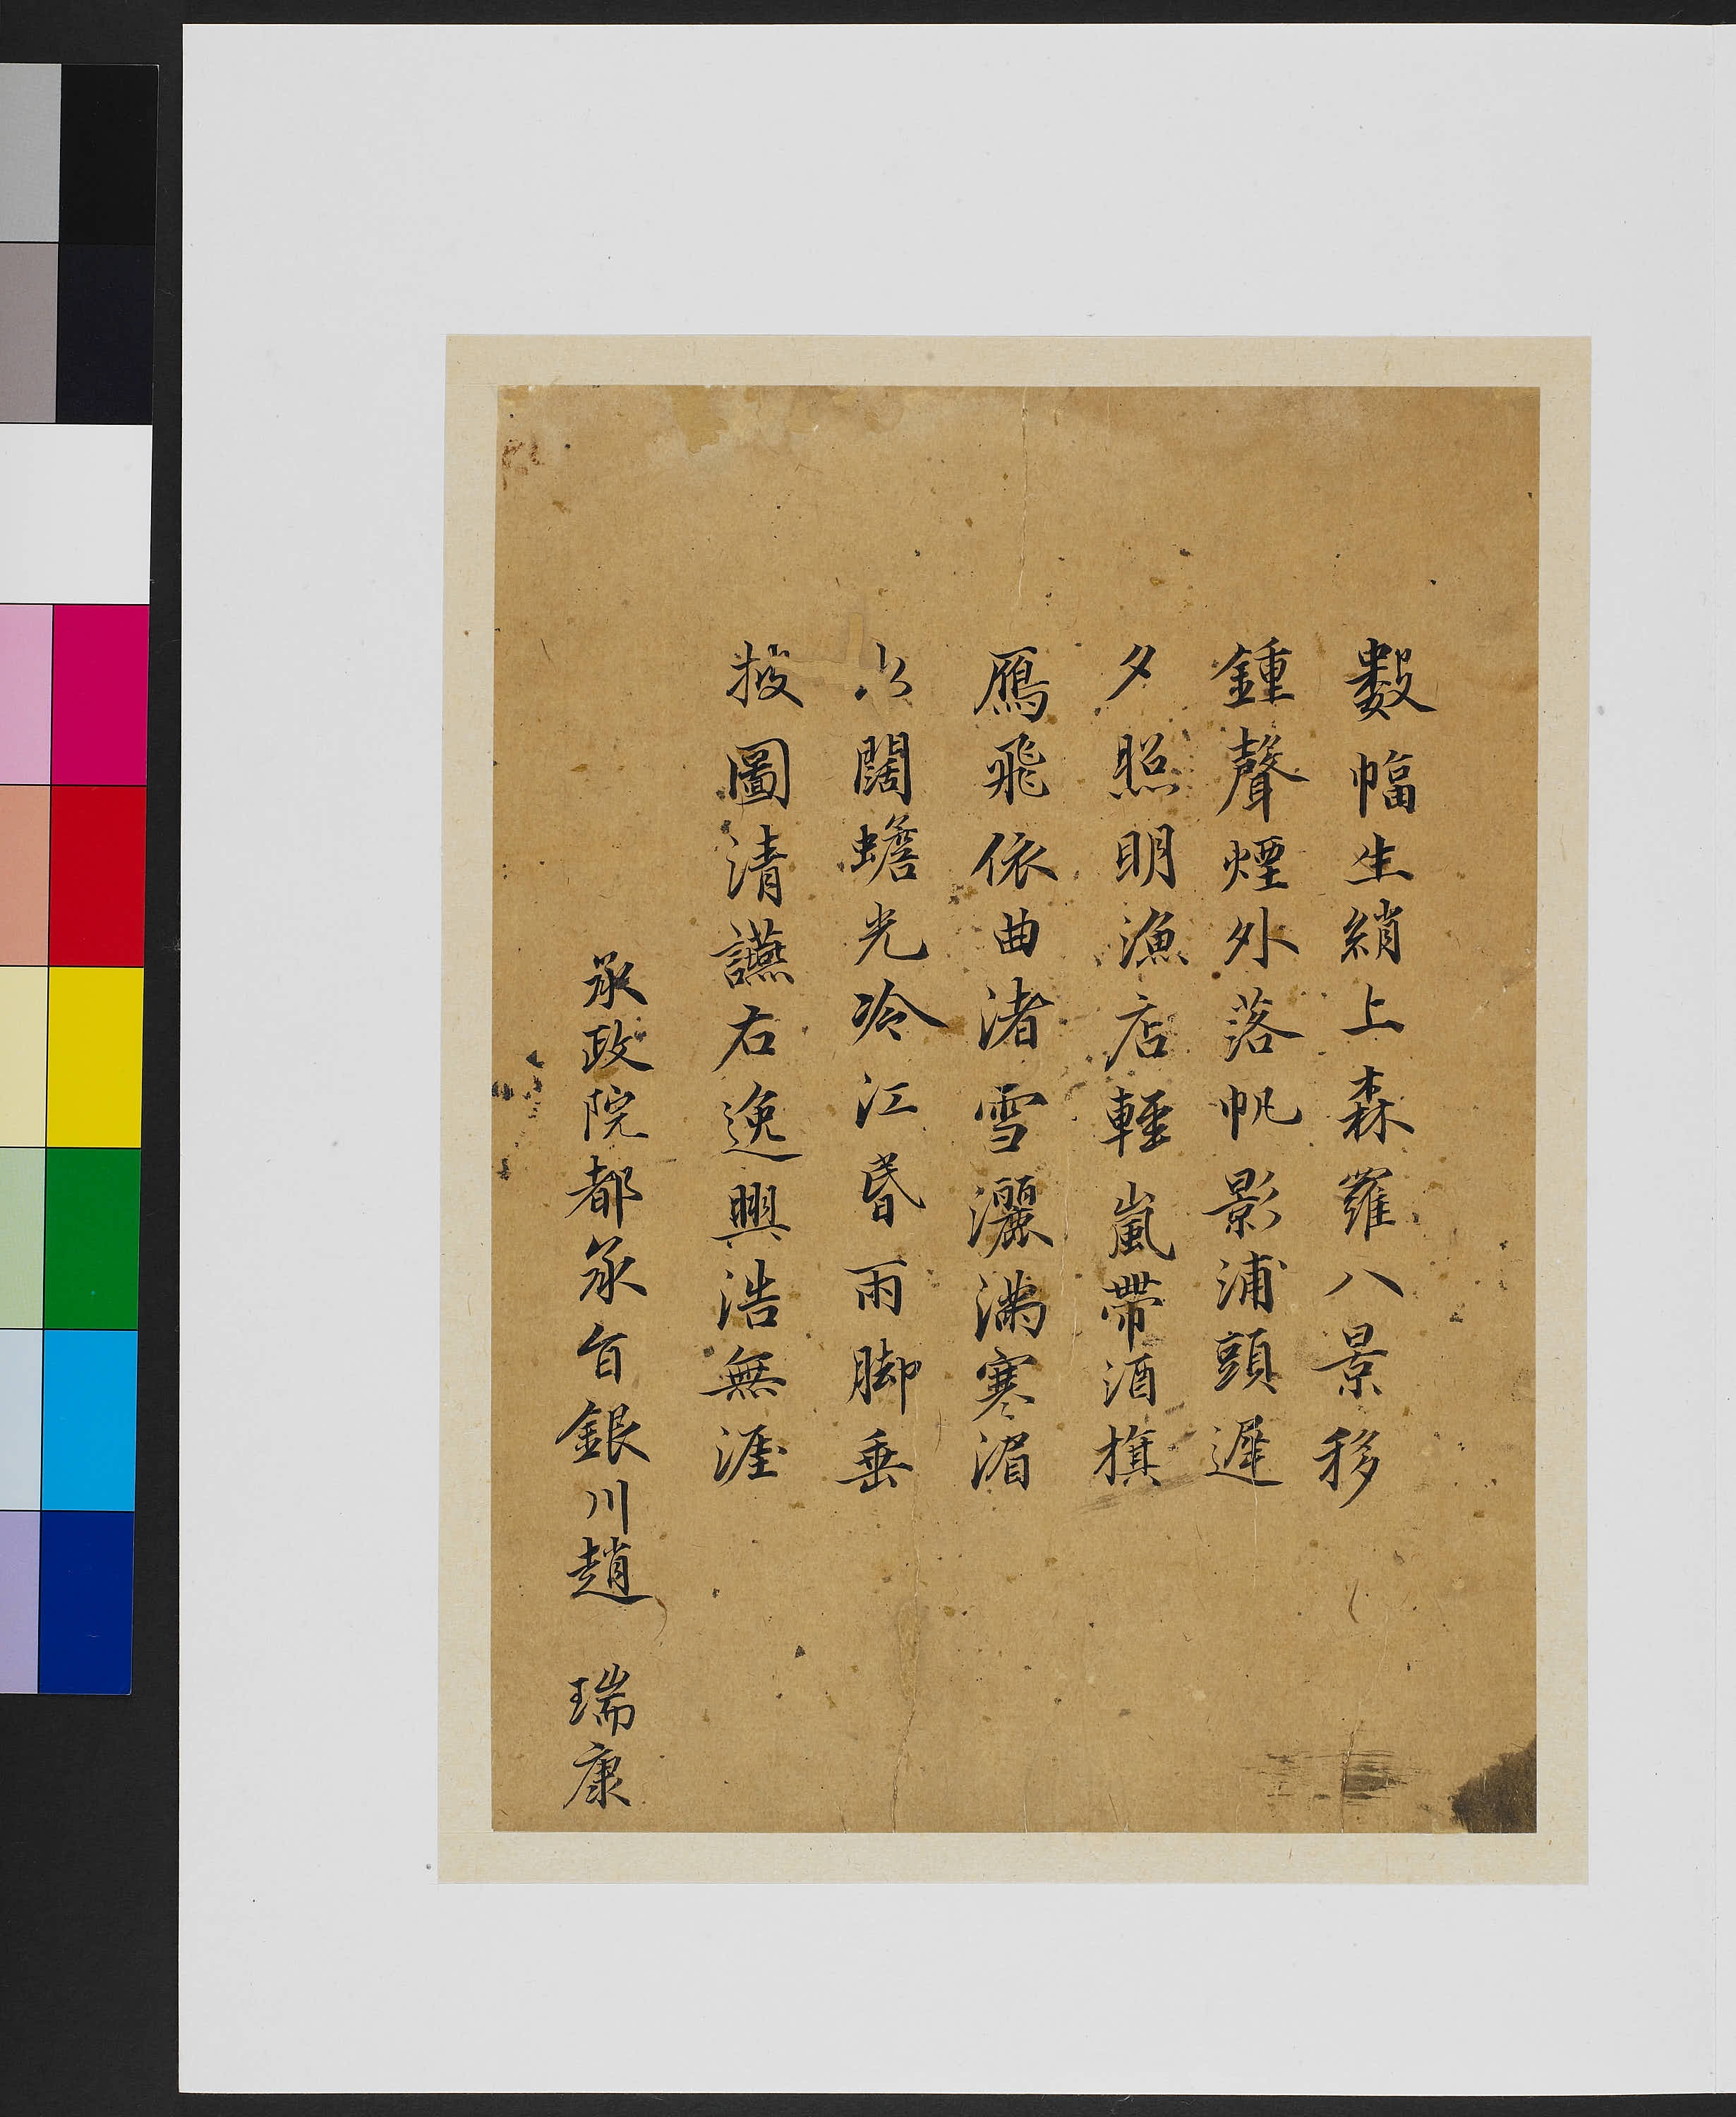 數幅生綃上森羅八景移
鍾聲煙外落帆影浦頭遲
夕照明漁店輕嵐帶酒旗
鴈飛依曲渚雪灑滿寒湄
水闊蟾光冷江昏雨脚垂
披圖清讌右逸興浩無涯
承政院都承旨銀川趙　瑞康